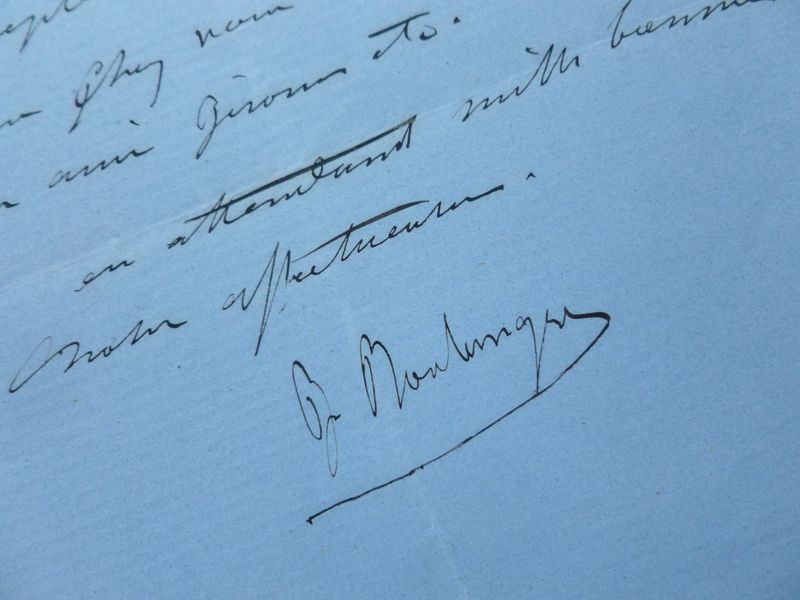 chez vous
ami Girom etc.
en attendant mille bonnes
Notre affectueuse.
G. Boulanger